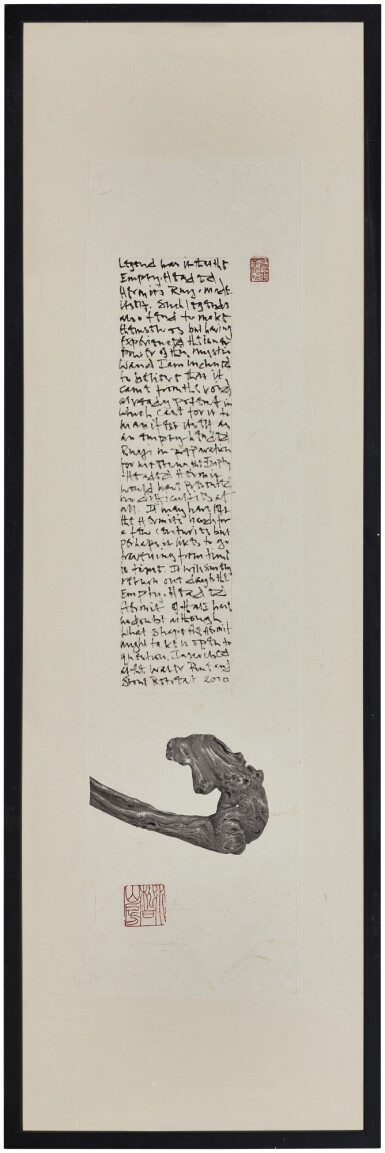 Legend has it that the
Empty-Headed
Hermit's Ruyi made
itself. Such legends
also tend to make
themselves but having
experienced the inner
power of this mystic
wand I am inclined
to believe that it
came from the void
already potent in
which case for it to
manifest itself as
an empty-headed
Ruyi in preparation
for meeting the Empty
Headed Hermit
would have presented
no difficulties at
all. It may have left
the Hermit's hands for
a few centuries but
perhaps it likes to go
from time
to time. It will surely
return one day to the
Empty-Headed
Hermit of that I have
no doubt although
what shape the Hermit
might take is open to
question. Inscribed
at the Water, Pine and
Stone Retreat 2010